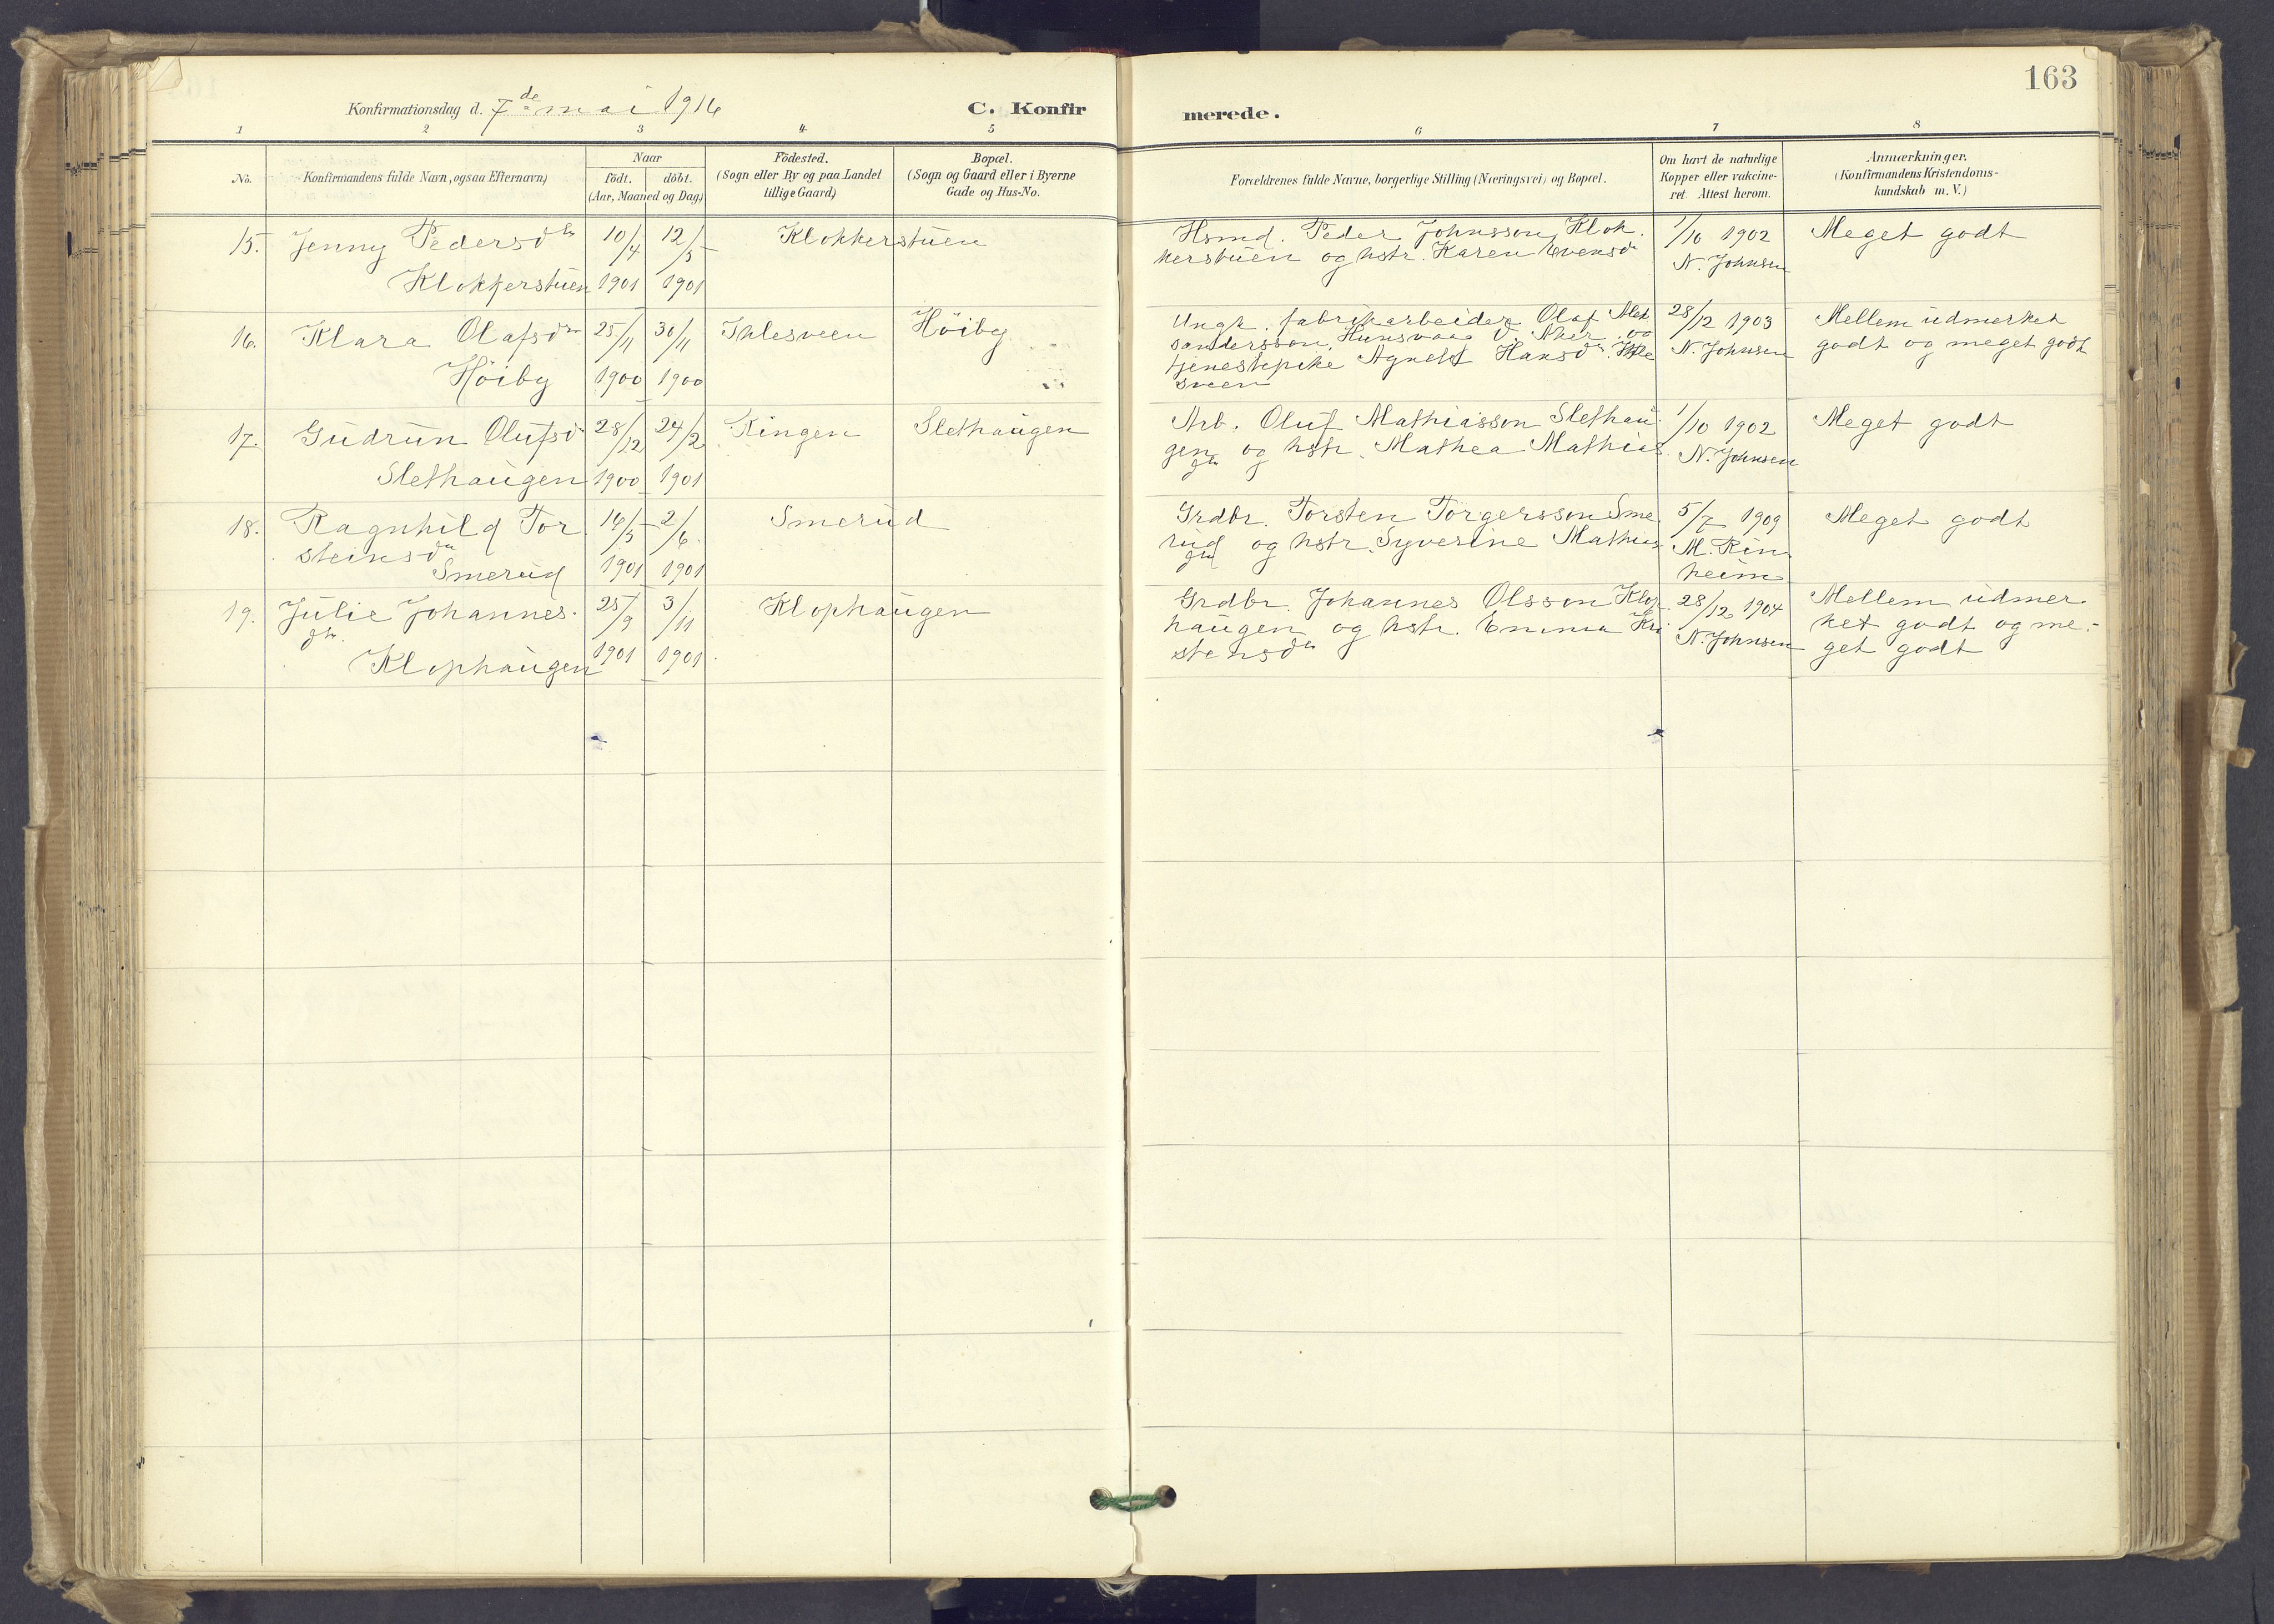 163
Konfirmationsdag d. 7de mai 1916
C. Konfirmerede.
1 2 3 4 5 6 7 8
No.
Konfirmandens fulde Navn, ogsaa Efternavn)
Naar
födt. döbt.
(Aar, Maaned og Dag)
Födested.
(Sogn eller By og paa Landet
tillige Gaard)
Bopæl.
(Sogn og Gaard eller i Byerne
Gade og Hus-No.
Forældrenes fulde Navne, borgerlige Stilling (Næringsvei) og Bopæl.
Om havt de naturlige
Kopper eller vakcine-
ret. Attest herom.
Anmærkninger.
(Konfirmandens Kristendoms-
kundskab m. V.)
15. Jenny Pedersdtr
Klokkerstuen
10/4 1901
12/5 1901
Klokkerstuen
Hsmd. Peder Johnsson, Klok.
kerstuen og hstr. Karen Evensdr
1/10 1902
N. Johnsen
Meget godt
16. Klara Olafsdr
Höiby
25/11 1900
30/11 1900
Ihlesveen
Höiby
Ungk. fabrikarbeider Olaf Alek
sandersson, Hunsvaas V. Aker og
tjenestepike Agnete Hansdr. Ihle
sveen
28/12 1903
N. Johnsen
Mellem udmerket
godt og meget godt
17. Gudrun Olufsd
Slethaugen
28/12 1900
24/2 1901
Ringen
Slethaugen
Arb. Oluf Mathiasson Slethau
gen og hstr. Mathea Mathias
dtr
1/10 1902
N. Johnsen
Meget godt
18. Ragnhild Tor
steinsdtr
Smerud
16/5 1901
2/6 1901
Smerud
Grdbr. Torsten Torgersson Sme
rud og hstr. Syverine Mathias
dtr
5/7 1909
M. Rin
heim
Meget godt
19. Julie Johannes.
dtr.
Klophaugen
25/9 1901
3/11 1901
Klophaugen
Grdbr. Johannes Olsson Klop
haugen og hstr. Emma Kri
stensdtr
28/12 1904
N. Johnsen
Mellem udmer
ket godt og me-
get godt